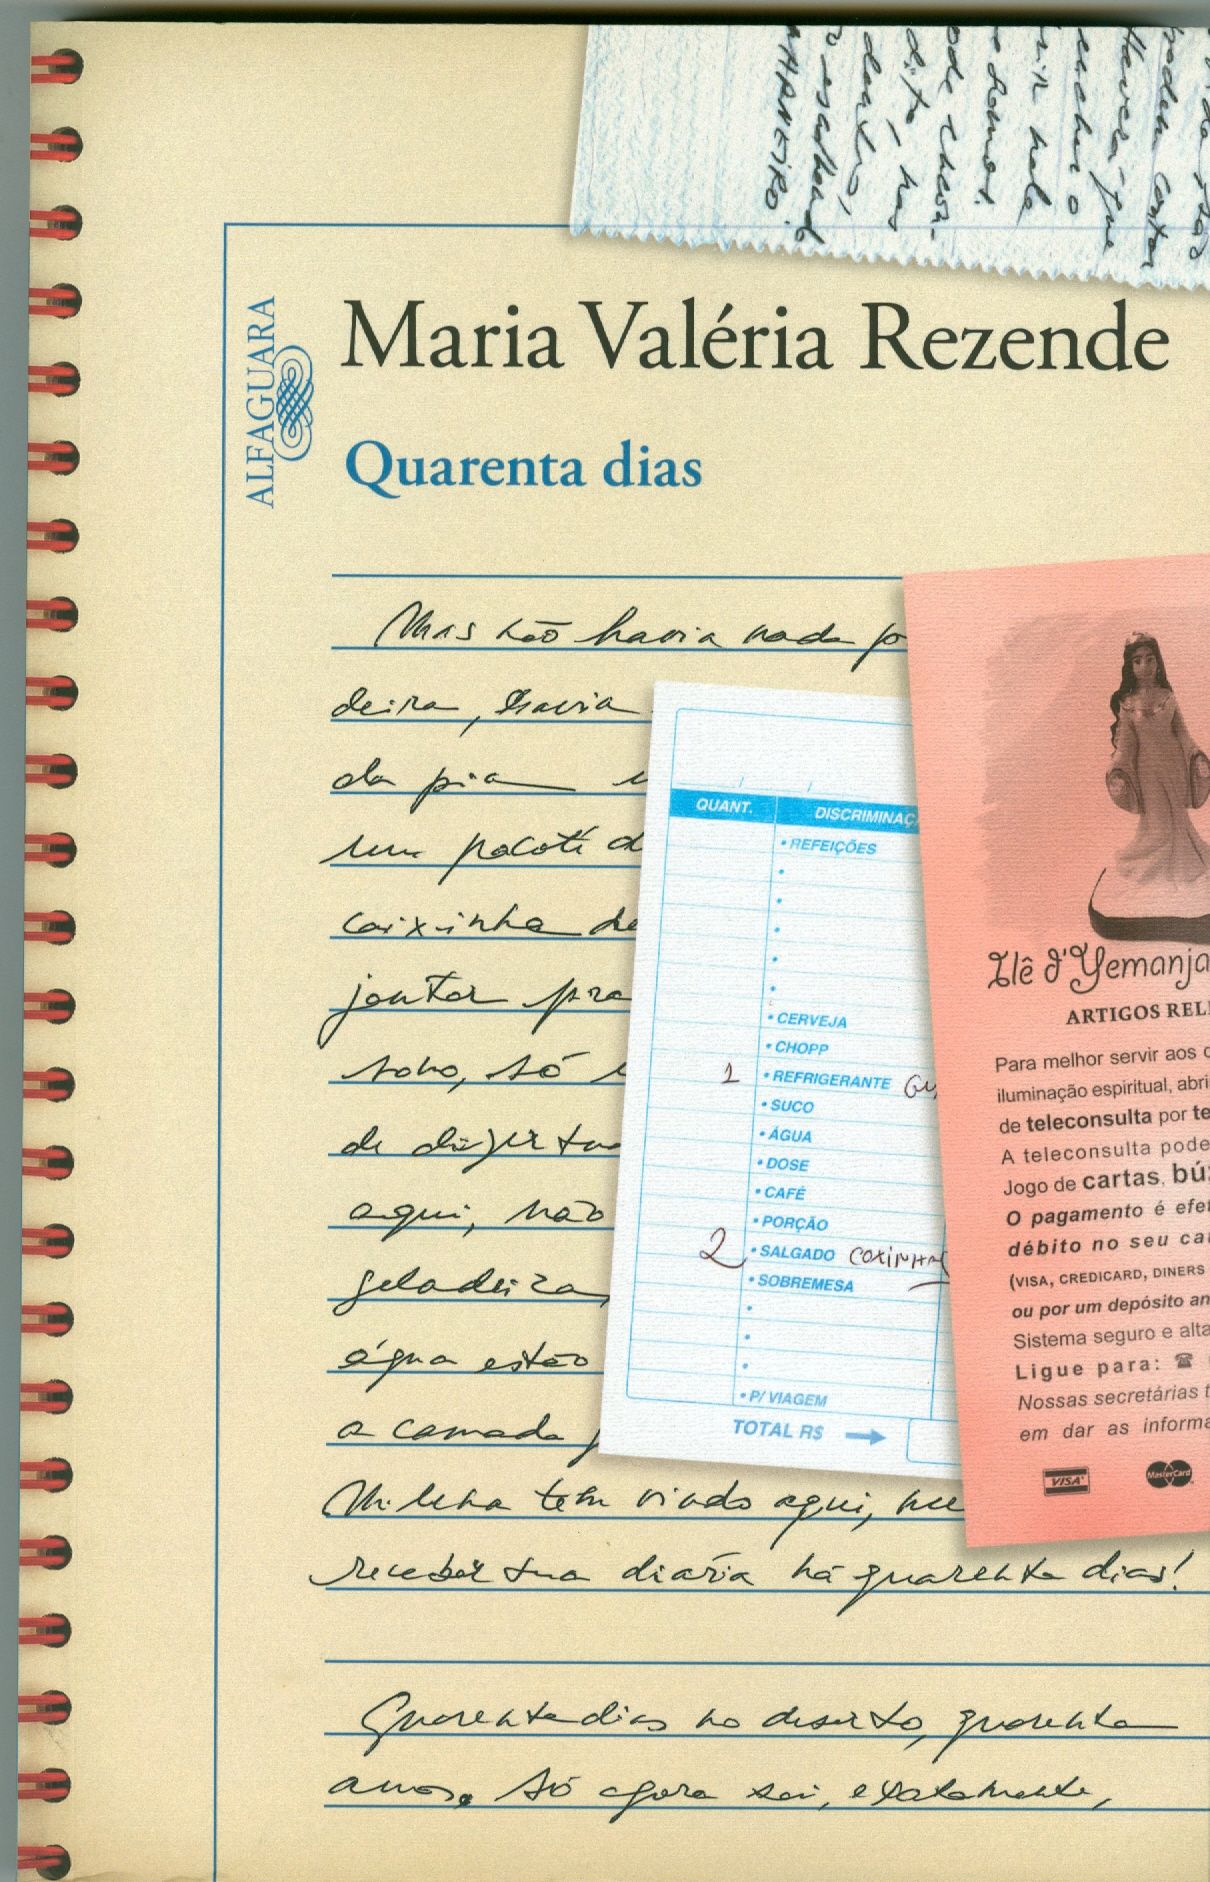 ALFAGUARA
Maria Valéria Rezende
Quarenta dias
Mas não havia nada
deira, havia
da pia
um pacote d
caixinha de
jantar pra
sono, só
de
aqui, não
geladeira,
água estão
a camada
Milena tem vindo aqui, nem
receber sua diária há quarenta dias!
Quarenta dias no deserto, quarenta
anos. Só agora sei, exatamente,
QUANT.
DISCRIMINAÇ
• REFEIÇÕES
• CERVEJA
• CHOPP
1 • REFRIGERANTE GU
• SUCO
• ÁGUA
• DOSE
• CAFÉ
• PORÇÃO
2 • SALGADO COXINHA
• SOBREMESA
• P/ VIAGEM
TOTAL R$
Ilê d'Yemanja
ARTIGOS RELI
Para melhor servir aos
iluminação espiritual, abri
de teleconsulta por te
A teleconsulta pode
Jogo de cartas, bú
O pagamento é efe
débito no seu ca
(VISA, CREDICARD, DINERS
ou por um depósito an
Sistema seguro e alta
Ligue para:
Nossas secretárias t
em dar as informa
VISA
MasterCard